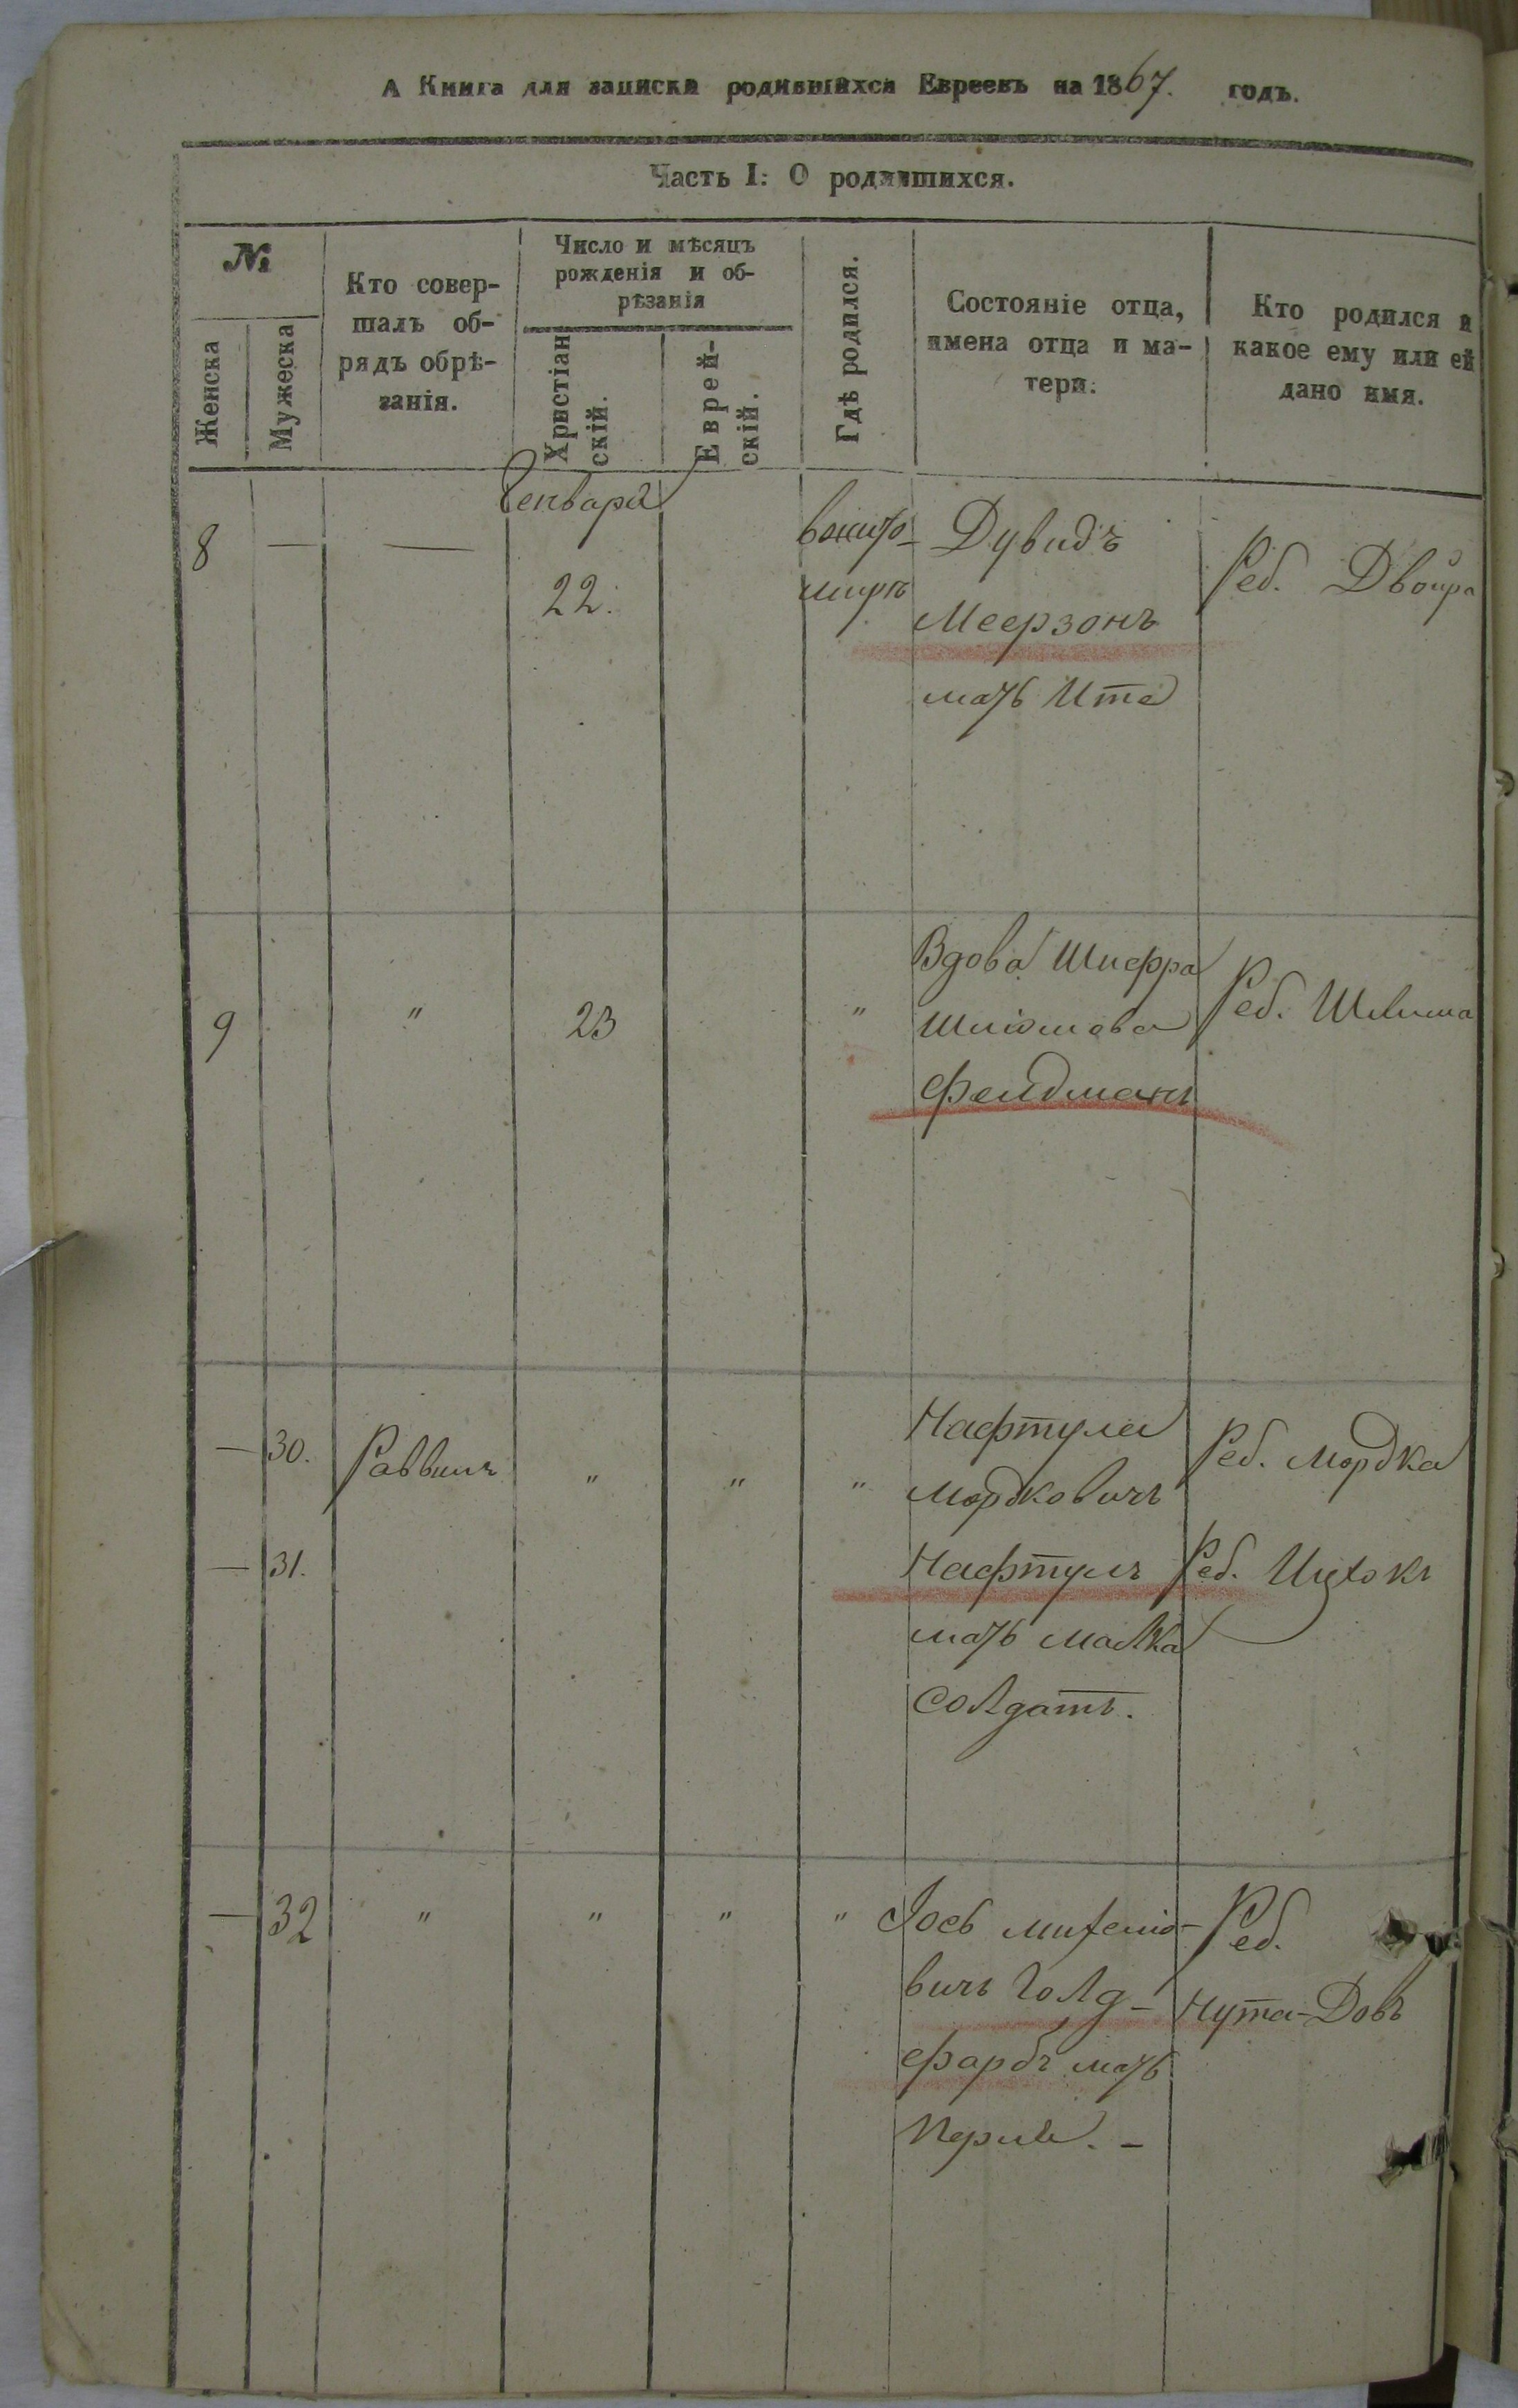 А Книга для записки родившихся Евреевъ на 1867. годъ.
Часть I: О родившихся.
№
Женска
Мужеска
Кто совер-
шалъ об-
рядъ обрѣ-
занія.
Число и мѣсяцъ
рожденія и об-
рѣзанія
Христіан
скій.
Еврей-
скій.
Гдѣ родился.
Состояніе отца,
имена отца и ма-
тери.
Кто родился и
какое ему или ей
дано имя.
8 — —
Генваря
22.
вжито-
мирѣ
Дувидъ
Меерзонъ
мать Ита
Реб. Двойра
9 " 23 "
Вдова Шифра
Шліомова
Фелдманъ
Реб.
— 30. Раввинъ " " "
Нафтула
Мордковичъ
Нафтулъ
мать Малка
солдатъ.
Реб. Мордка
— 31.
Реб. Ицхокъ
— 32 " " " "
Іось
вичъ Голд-
фарбъ мать
Перля. -
Реб.
Нута-Довъ